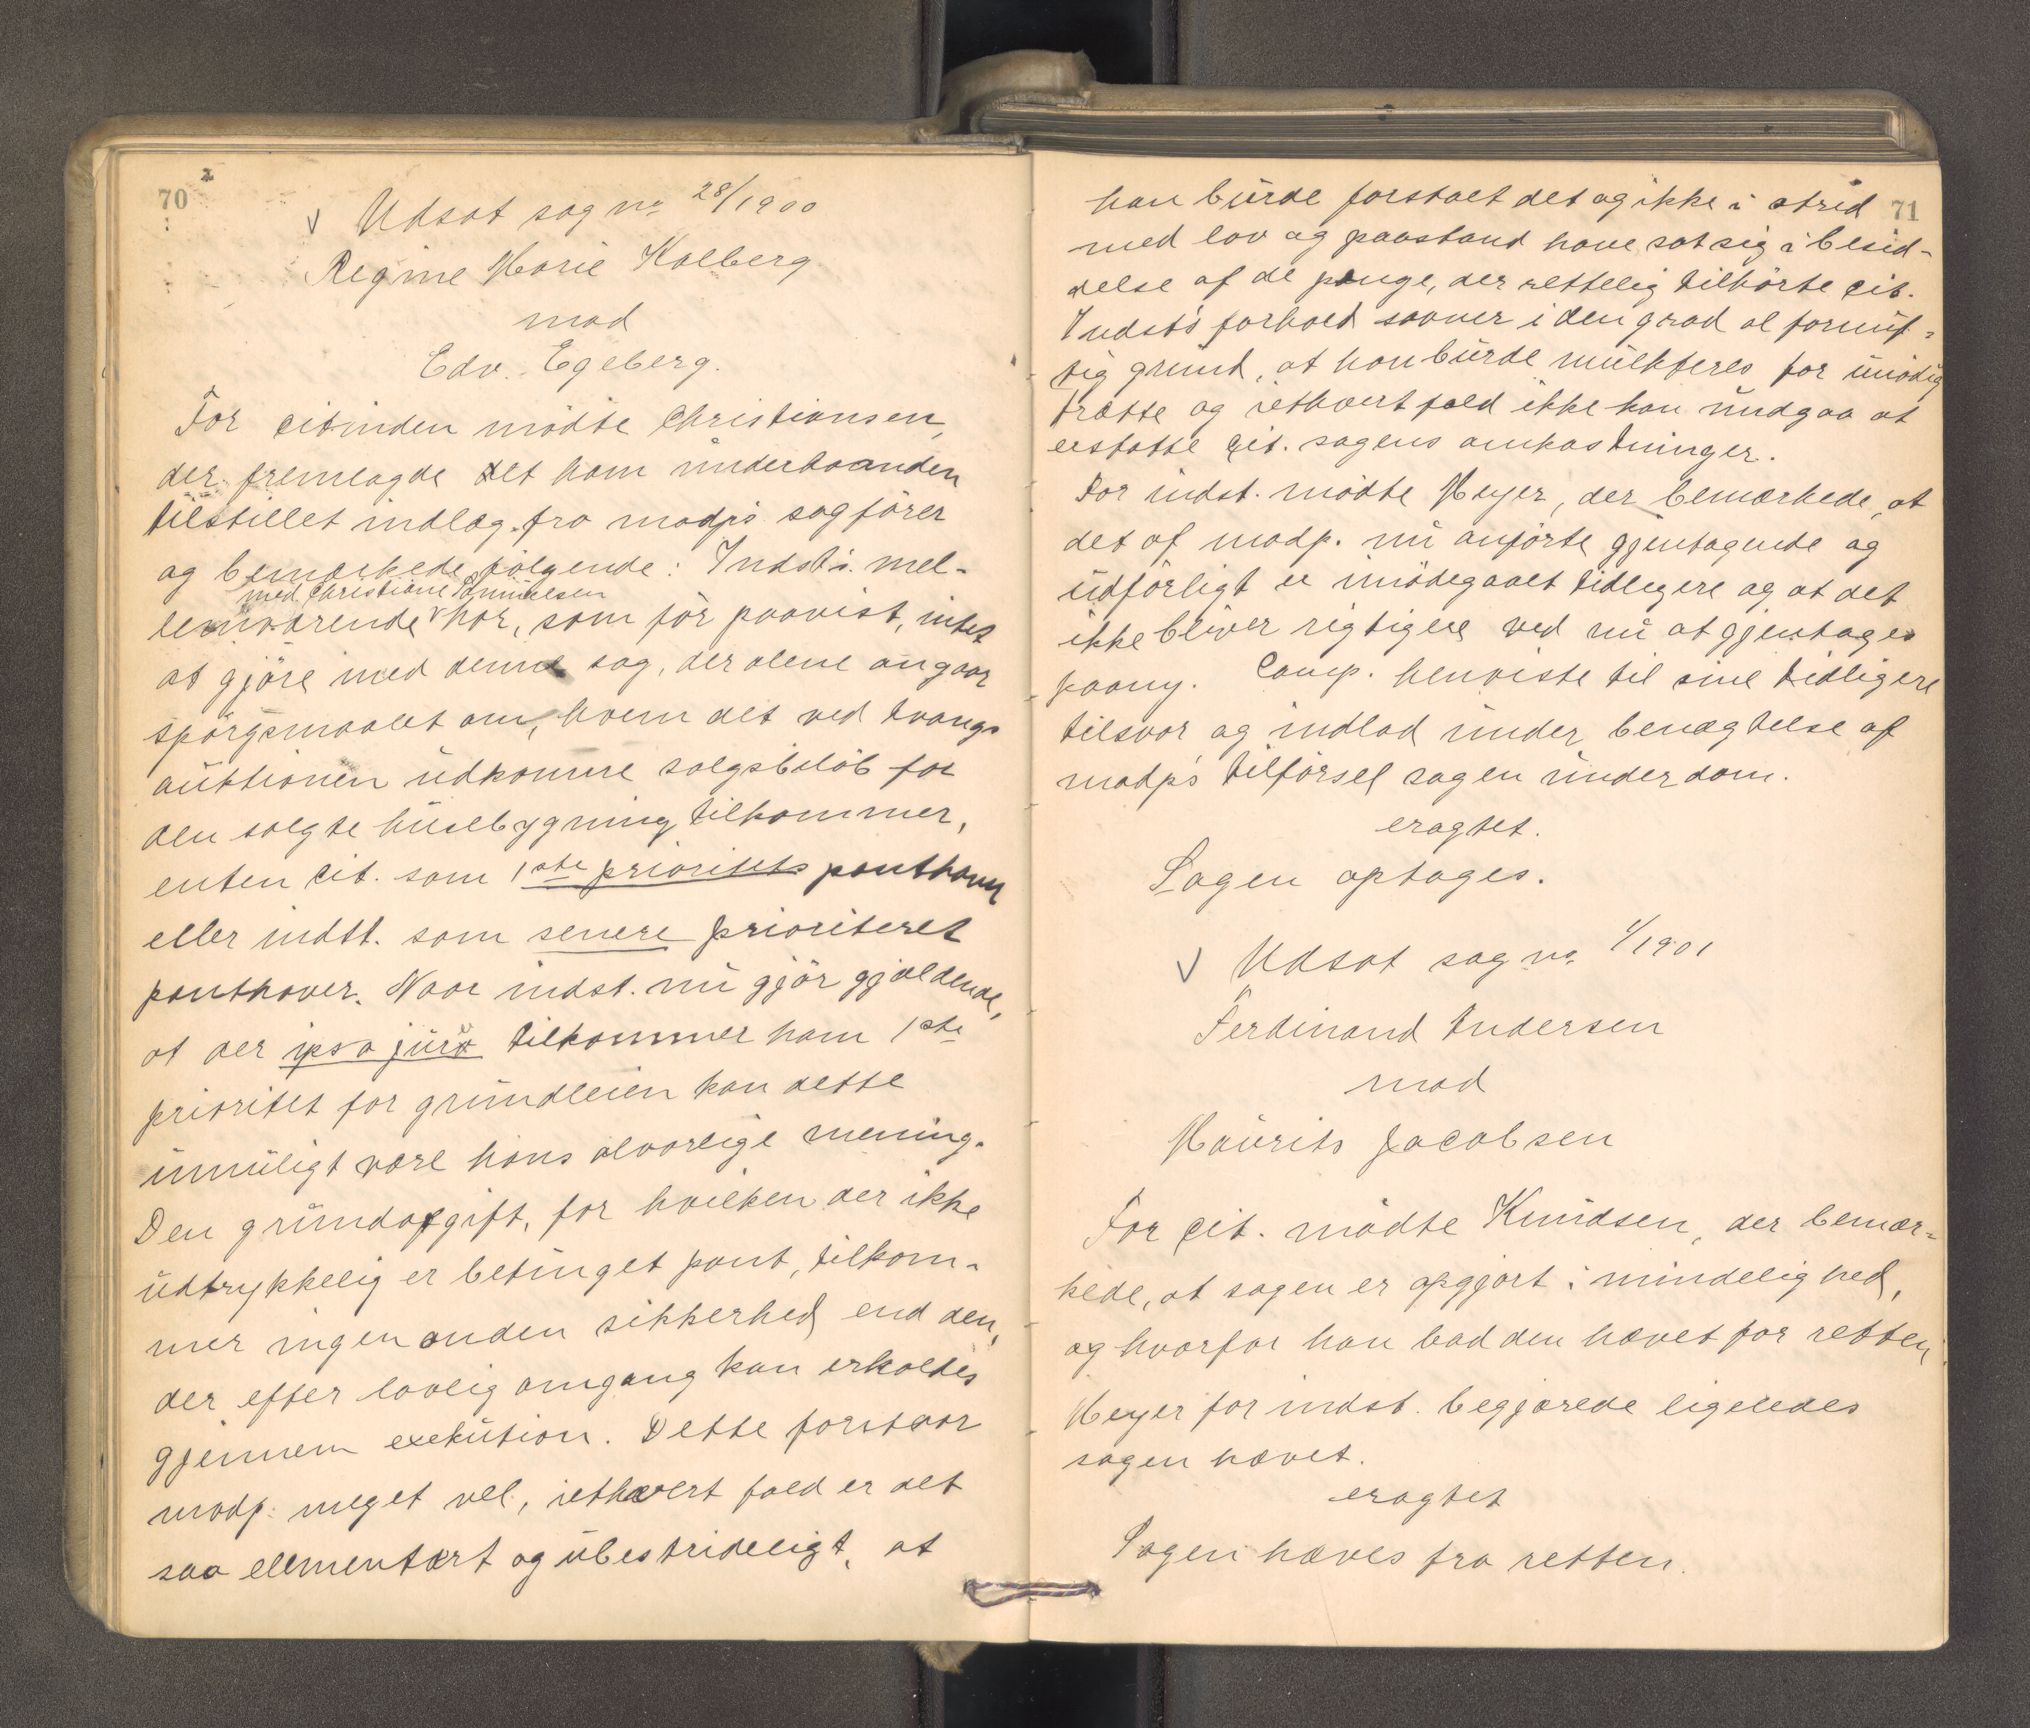 70
Udsat sag no 28/1900
Regine Marie Kolberg
mod
Edv. Egeberg.
For citinden mödte Christiansen,
der fremlagde det ham underhaanden
tilstillet indlæg fra modp's sagförer
og bemærkede fölgende: Indst's mel-
med Christiane Samuelsen
lemværende har, som för paavist, intet
at gjöre med denne sag, der alene angaar
spörgsmaalet om, hvem det ved tvangs
auktionen udkomne salgsbelöb for
den solgte husebygning tilkommer,
enten cit. som 1ste prioritets panthaver
eller indst. som senere prioriteret
panthaver. Naar indst. nu gjör gjældende,
at der ipso jure tilkommer ham 1ste
prioritet for grundleien kan dette
umuligt være hans alvorlige mening.
Den grundafgift, for hvilken der ikke
udtrykkelig er betinget pant, tilkom-
mer ingen anden sikkerhed end den,
der efter lovlig omgang kan erholdes
gjennem exekution. Dette forstaar
modp. meget vel, iethvert fald er det
saa elementært og ubestrideligt, at
71
han burde forstaaet det og ikke i strid
med lov og paastand have sat sig i besid-
delse af de penge, der rettelig tilhörte cit.
Indst's forhold savner i den grad al fornuf-
tig grund, at han burde mulkteres for unödig
trætte og iethvert fald ikke kan undgaa at
erstatte cit. sagens omkostninger.
For indst. mödte Meyer, der bemærkede, at
det af modp. nu anförte gjentagende og
udförligt er imödegaaet tidligere og at det
ikke bliver rigtigere ved nu at gjentages
paany. Comp. henviste til sine tidligere
tilsvar og indlod under benægtelse af
modp's tilförsel sagen under dom.
eragtet.
Sagen optages.
Udsat sag no 1/1901
Ferdinand Andersen
mod
Maurits Jacobsen
For cit. mödte Knudsen, der bemær-
kede, at sagen er opgjort i mindelighed,
og hvorfor han bad den hævet for retten,
Meyer for indst. begjærede ligeledes
sagen hævet.
eragtet
Sagen hæves fra retten.